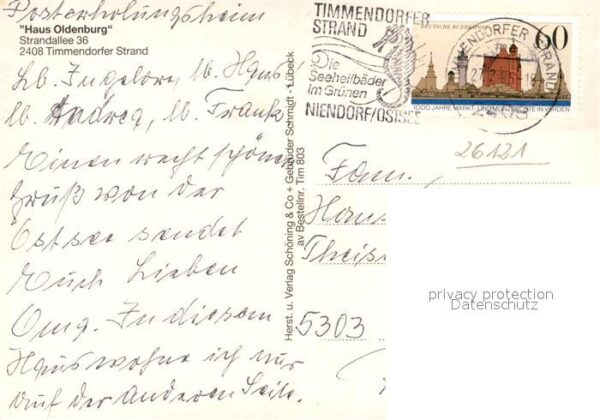 Posterholungsheim
"Haus Oldenburg"
Strandallee 36
2408 Timmendorfer Strand
Lb. Ingelore, lb. Hans
lb. Hedwig, lb. Frank
Einen recht schönen
Gruß von der
Ostsee sendet
Euch Lieben
In diesem
Haus wohne ich nur
auf der anderen Seite.
Herst. u. Verlag Schöning & Co + Gebrüder Schmidt · Lübeck
av Bestellnr. Tim 803
TIMMENDORFER
STRAND
Die
Seeheilbäder
im Grünen
NIENDORF/OSTSEE
DEUTSCHE BUNDESPOST
60
1000 JAHRE MARKT- UND MÜNZRECHTE IN VERDEN
2408
26121
Fam.
Hans
Theis
5303
privacy protection
Datenschutz